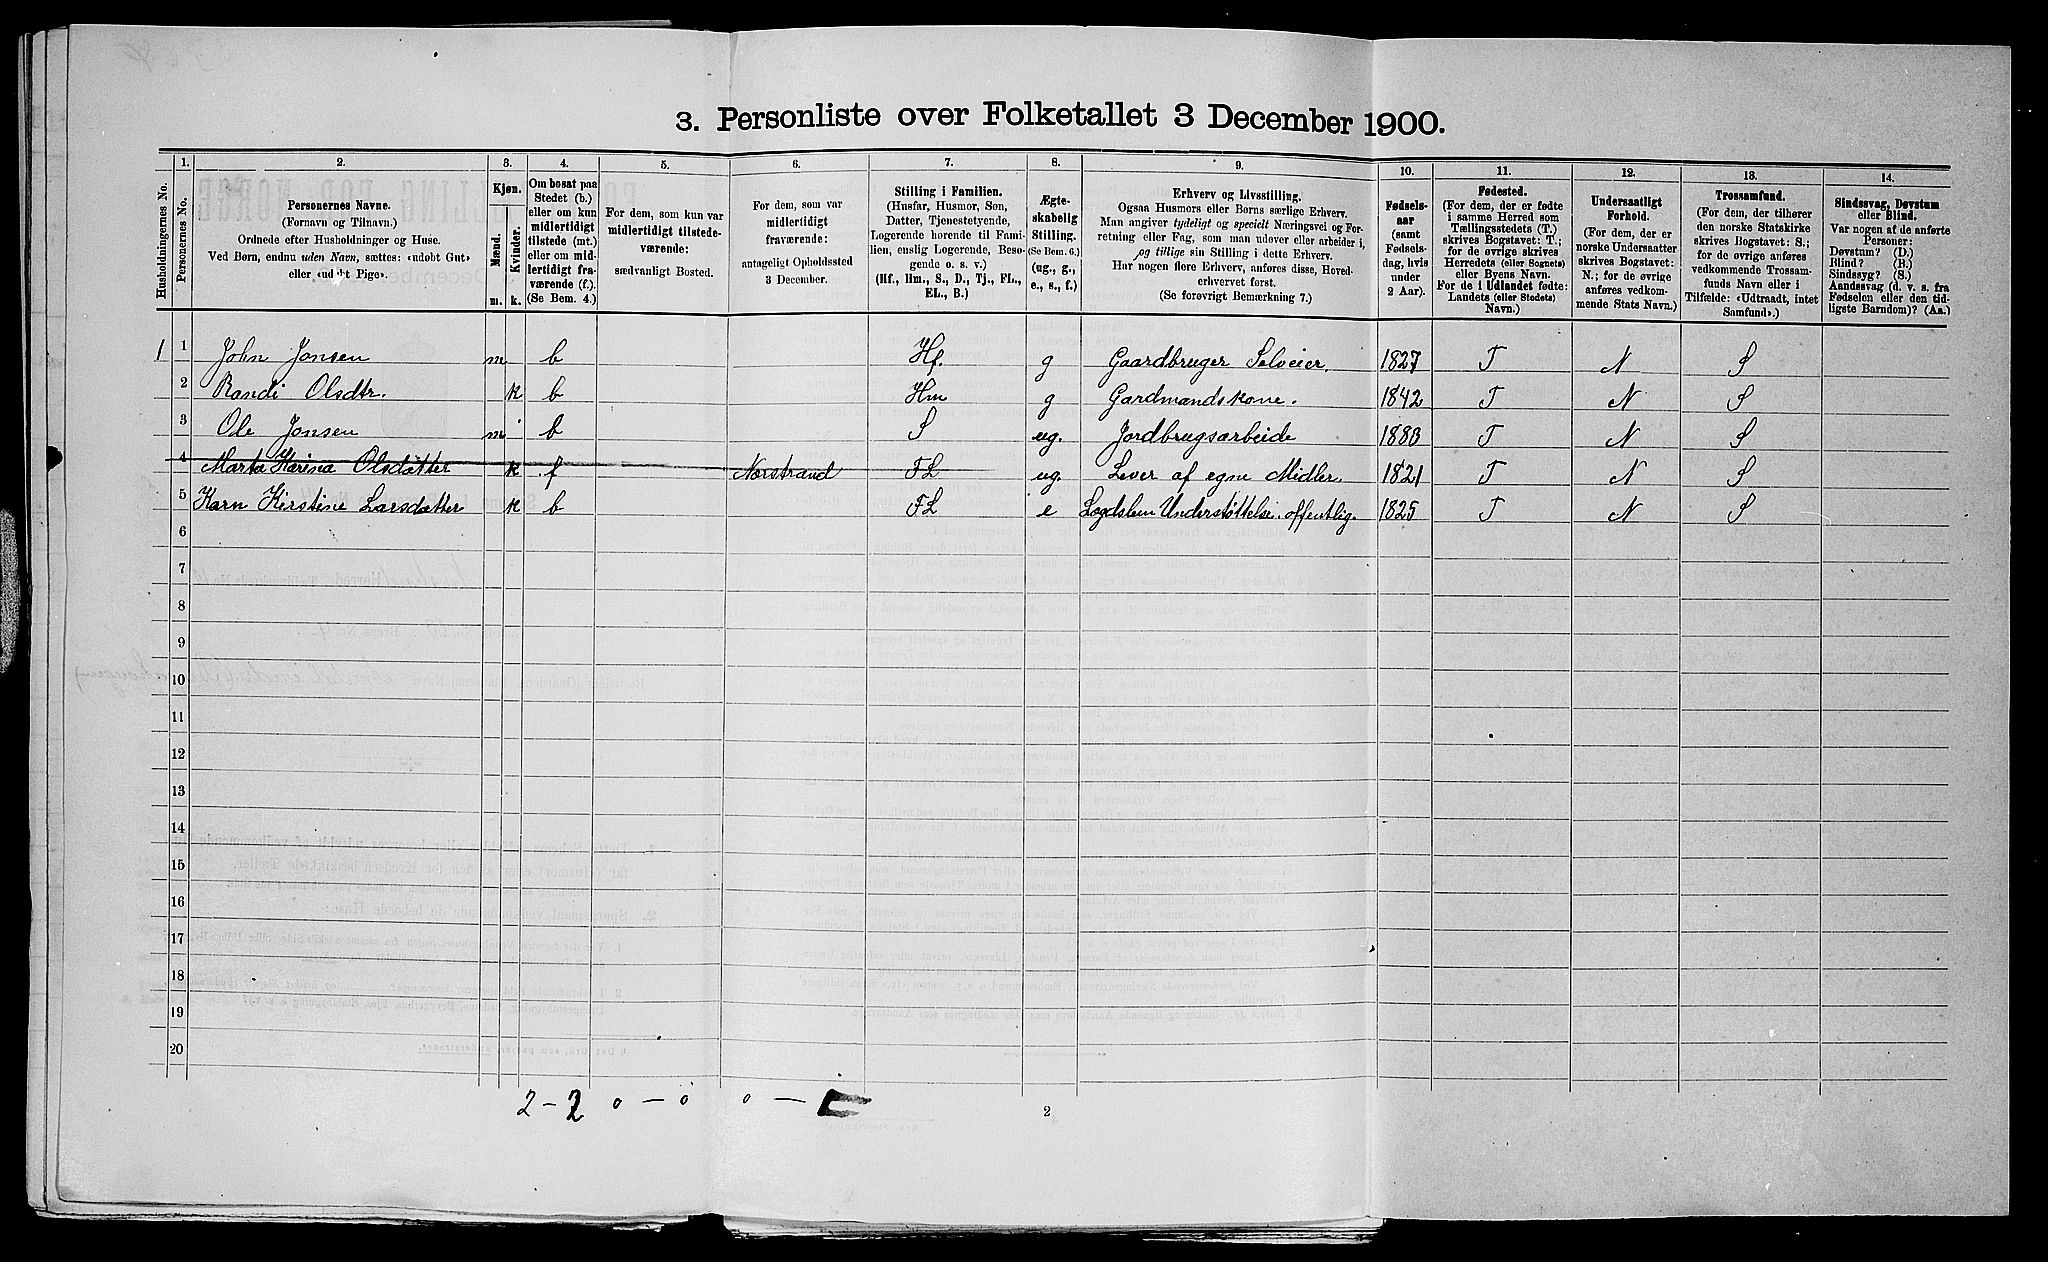 3. Personliste over Folketallet 3 December 1900.
1. 2. 3. 4. 5. 6. 7. 8. 9. 10. 11. 12. 13. 14.
Husholdningernes No.
Personernes No.
Personernes Navne.
(Fornavn og Tilnavn.)
Ordnede efter Husholdninger og Huse.
Ved Børn, endnu uden Navn, sættes: «udøbt Gut»
eller «udøbt Pige».
Kjøn.
Mænd.
Kvinder.
m. k.
Om bosat paa
Stedet (b.)
eller om kun
midlertidigt
tilstede (mt.)
eller om mid-
lertidigt fra-
værende (f.)
(Se Bem. 4.)
For dem, som kun var
midlertidigt tilstede-
værende:
sædvanligt Bosted.
For dem, som var
midlertidigt
fraværende:
antageligt Opholdssted
3 December.
Stilling i Familien.
(Husfar, Husmor, Søn,
Datter, Tjenestetyende,
Logerende hørende til Fami-
lien, enslig Logerende, Besø-
gende o. s. v.)
(Hf., Hm., S., D., Tj., FL.,
EL., B.)
Ægte-
skabelig
Stilling.
(Se Bem. 6.)
(ug., g.,
e., s., f.)
Erhverv og Livsstilling.
Ogsaa Husmors eller Børns særlige Erhverv.
Man angiver tydeligt og specielt Næringsvei og For-
retning eller Fag, som man udøver eller arbeider i,
og tillige sin Stilling i dette Erhverv.
Har nogen flere Erhverv, anføres disse, Hoved-
erhvervet først.
(Se forøvrigt Bemærkning 7.)
Fødsels-
aar
(samt
Fødsels-
dag, hvis
under
2 Aar).
Fødested.
(For dem, der er fødte
i samme Herred som
Tællingsstedets (T.)
skrives Bogstavet: T.;
for de øvrige skrives
Herredets (eller Sognets)
eller Byens Navn.
For de i Udlandet fødte:
Landets (eller Stedets)
Navn.)
Undersaatligt
Forhold.
(For dem, der er
norske Undersaatter
skrives Bogstavet:
N.; for de øvrige
anføres vedkom-
mende Stats Navn.)
Trossamfund.
(For dem, der tilhører
den norske Statskirke
skrives Bogstavet: S.;
for de øvrige anføres
vedkommende Trossam-
funds Navn eller i
Tilfælde: «Udtraadt, intet
Samfund».)
Sindssvag, Døvstum
eller Blind.
Var nogen af de anførte
Personer:
Døvstum? (D.)
Blind? (B.)
Sindssyg? (S.)
Aandssvag (d. v. s. fra
Fødselen eller den tid-
ligste Barndom)? (Aa.)
1 1 John Jonsen m b Hf. g Gaardbruger Selveier. 1827 T N S
2 Randi Olsdtr. k b Hm g Gardmandskone. 1842 T N S
3 Ole Jonsen m b S ug. Jordbrugsarbeide 1883 T N S
4 Marta Karina Olsdatter k f Norstrand FL ug. Lever af egne Midler. 1821 T N S
5 Karn Kirstine Larsdatter k b FL e Lægdslem Understøttelse. offentlig. 1825 T N S
6
7
8
9
10
11
12
13
14
15
16
17
18
19
20
2 - 2 0 - 0 0 -
2